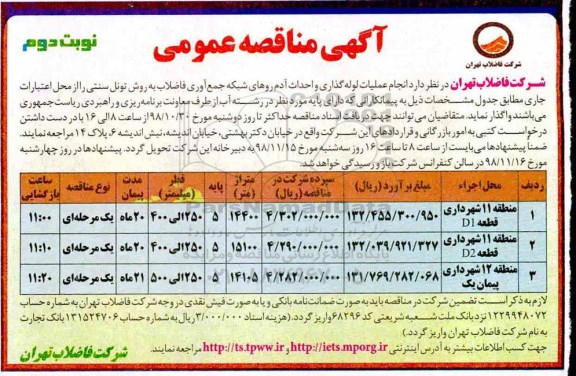 آگهی مناقصه عمومی
نوبت دوم
شرکت فاضلاب تهران
شرکت فاضلاب تهران در نظر دارد انجام عملیات لوله گذاری و احداث آدم روهای شبکه جمع آوری فاضلاب به روش تونل سنتی را از محل اعتبارات
جاری مطابق جدول مشخصات ذیل به پیمانکارانی که دارای پایه مورد نظر در رشته آب از طرف معاونت برنامه ریزی و راهبردی ریاست جمهوری
می باشند واگذار نماید. متقاضیان می توانند جهت دریافت اسناد مناقصه حداکثر تا روز دوشنبه مورخ ۹۸/۱۰/۳۰ از ساعت ۸ الی ۱۶ با در دست داشتن
درخواست کتبی به امور بازرگانی و قراردادهای این شرکت واقع در خیابان دکتر بهشتی، خیابان اندیشه، نبش اندیشه ۶ پلاک ۱۴ مراجعه نمایند.
ضمناً پیشنهادها می بایست از ساعت ۸ تا ساعت ۱۶ روز سه شنبه مورخ ۹۸/۱۱/۱۵ به دبیرخانه این شرکت تحویل گردد. پیشنهادها در روز چهارشنبه
مورخ ۹۸/۱۱/۱۶ در سالن کنفرانس شرکت باز و رسیدگی خواهد شد.
ردیف محل اجراء مبلغ برآورد (ریال) سپرده شرکت در مناقصه (ریال) متراژ (متر) پایه قطر (میلیمتر) مدت پیمان نوع مناقصه ساعت بازگشایی
۱ منطقه ۱۱ شهرداری قطعه D1 ۱۳۲/۴۵۵/۳۰۰/۹۵۰ ۴/۳۰۲/۰۰۰/۰۰۰ ۱۴۴۰۰ ۵ ۲۵۰ الی ۴۰۰ ۲۰ ماه یک مرحله ای ۱۱:۰۰
۲ منطقه ۱۱ شهرداری قطعه D2 ۱۳۲/۰۳۹/۹۲۱/۳۲۷ ۴/۲۹۰/۰۰۰/۰۰۰ ۱۵۱۰۰ ۵ ۲۵۰ الی ۴۰۰ ۲۰ ماه یک مرحله ای ۱۱:۱۰
۳ منطقه ۱۲ شهرداری پیمان یک ۱۳۱/۷۶۹/۲۸۲/۰۶۸ ۴/۲۸۲/۰۰۰/۰۰۰ ۱۴۱۰۵ ۵ ۲۵۰ الی ۵۰۰ ۲۱ ماه یک مرحله ای ۱۱:۲۰
لازم به ذکر است تضمین شرکت در مناقصه باید به صورت ضمانت نامه بانکی و یا به صورت فیش نقدی در وجه شرکت فاضلاب تهران به شماره حساب
۱۲۲۹۹۴۸۰۷۲ نزد بانک ملت شعبه شریعتی کد ۶۸۲۹۶ واریز گردد. (هزینه اسناد ۳/۰۰۰/۰۰۰ ریال به شماره حساب ۱۳۱۵۲۴۷۰۶ بانک تجارت
به نام شرکت فاضلاب تهران واریز گردد.)
جهت کسب اطلاعات بیشتر به آدرس اینترنتی http://iets.mporg.ir و http://ts.tpww.ir مراجعه نمایند.
شرکت فاضلاب تهران